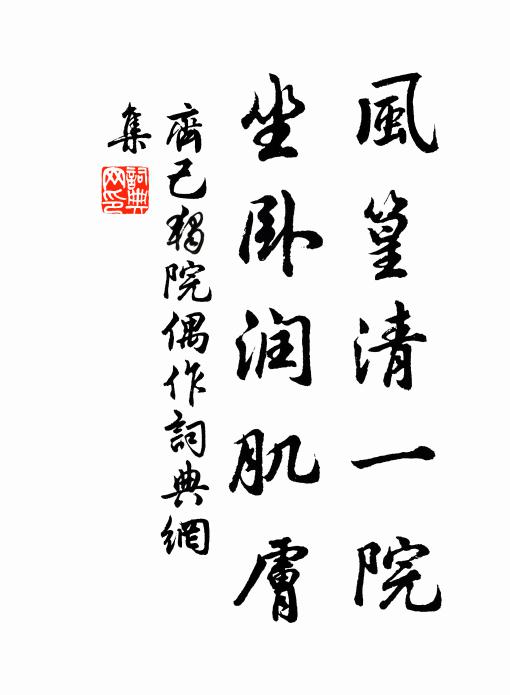 風篁清一院
坐卧润肌膚
齊己獨院偶作詞典網
集
詞典网印